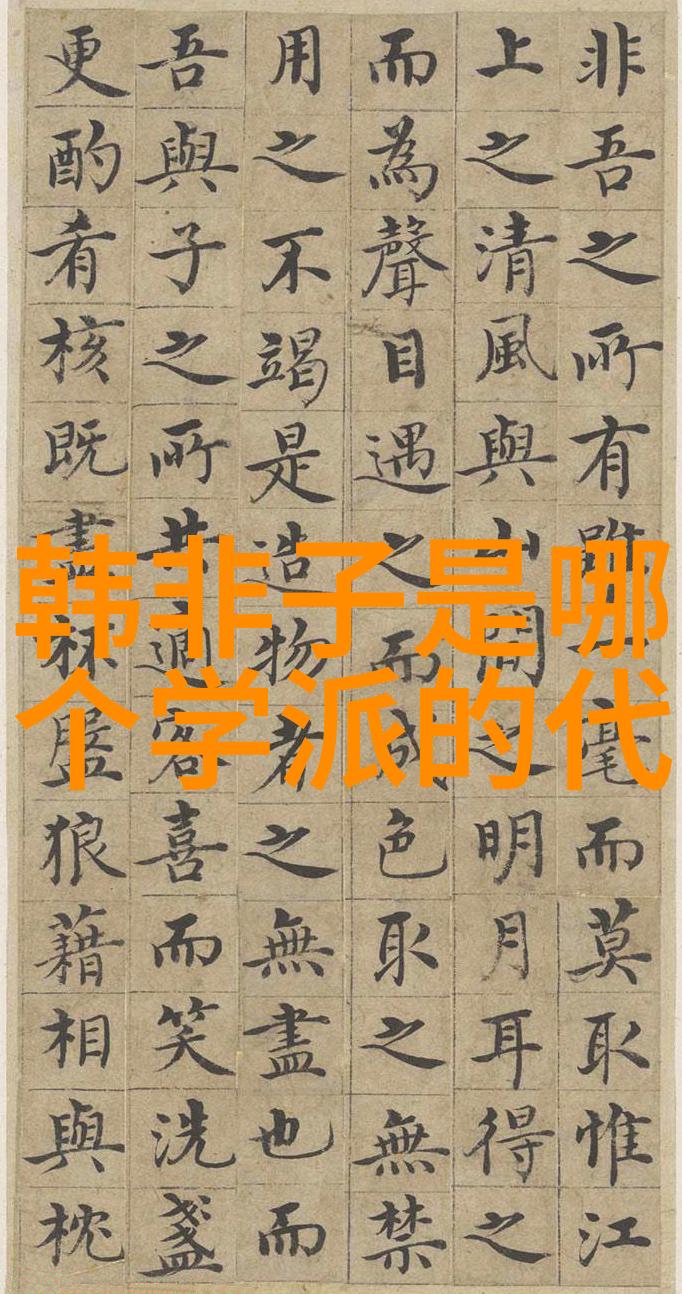 韩非子是哪
个学派的代
非吾之所有雖一毫而莫取惟江
上之清風與山間之明月耳得之
而為聲目遇之而成色取之無禁
用之不竭是造物者之無盡也而
吾與子之所共適客喜而笑洗盞
更酌肴核既盡杯盤狼藉相與枕